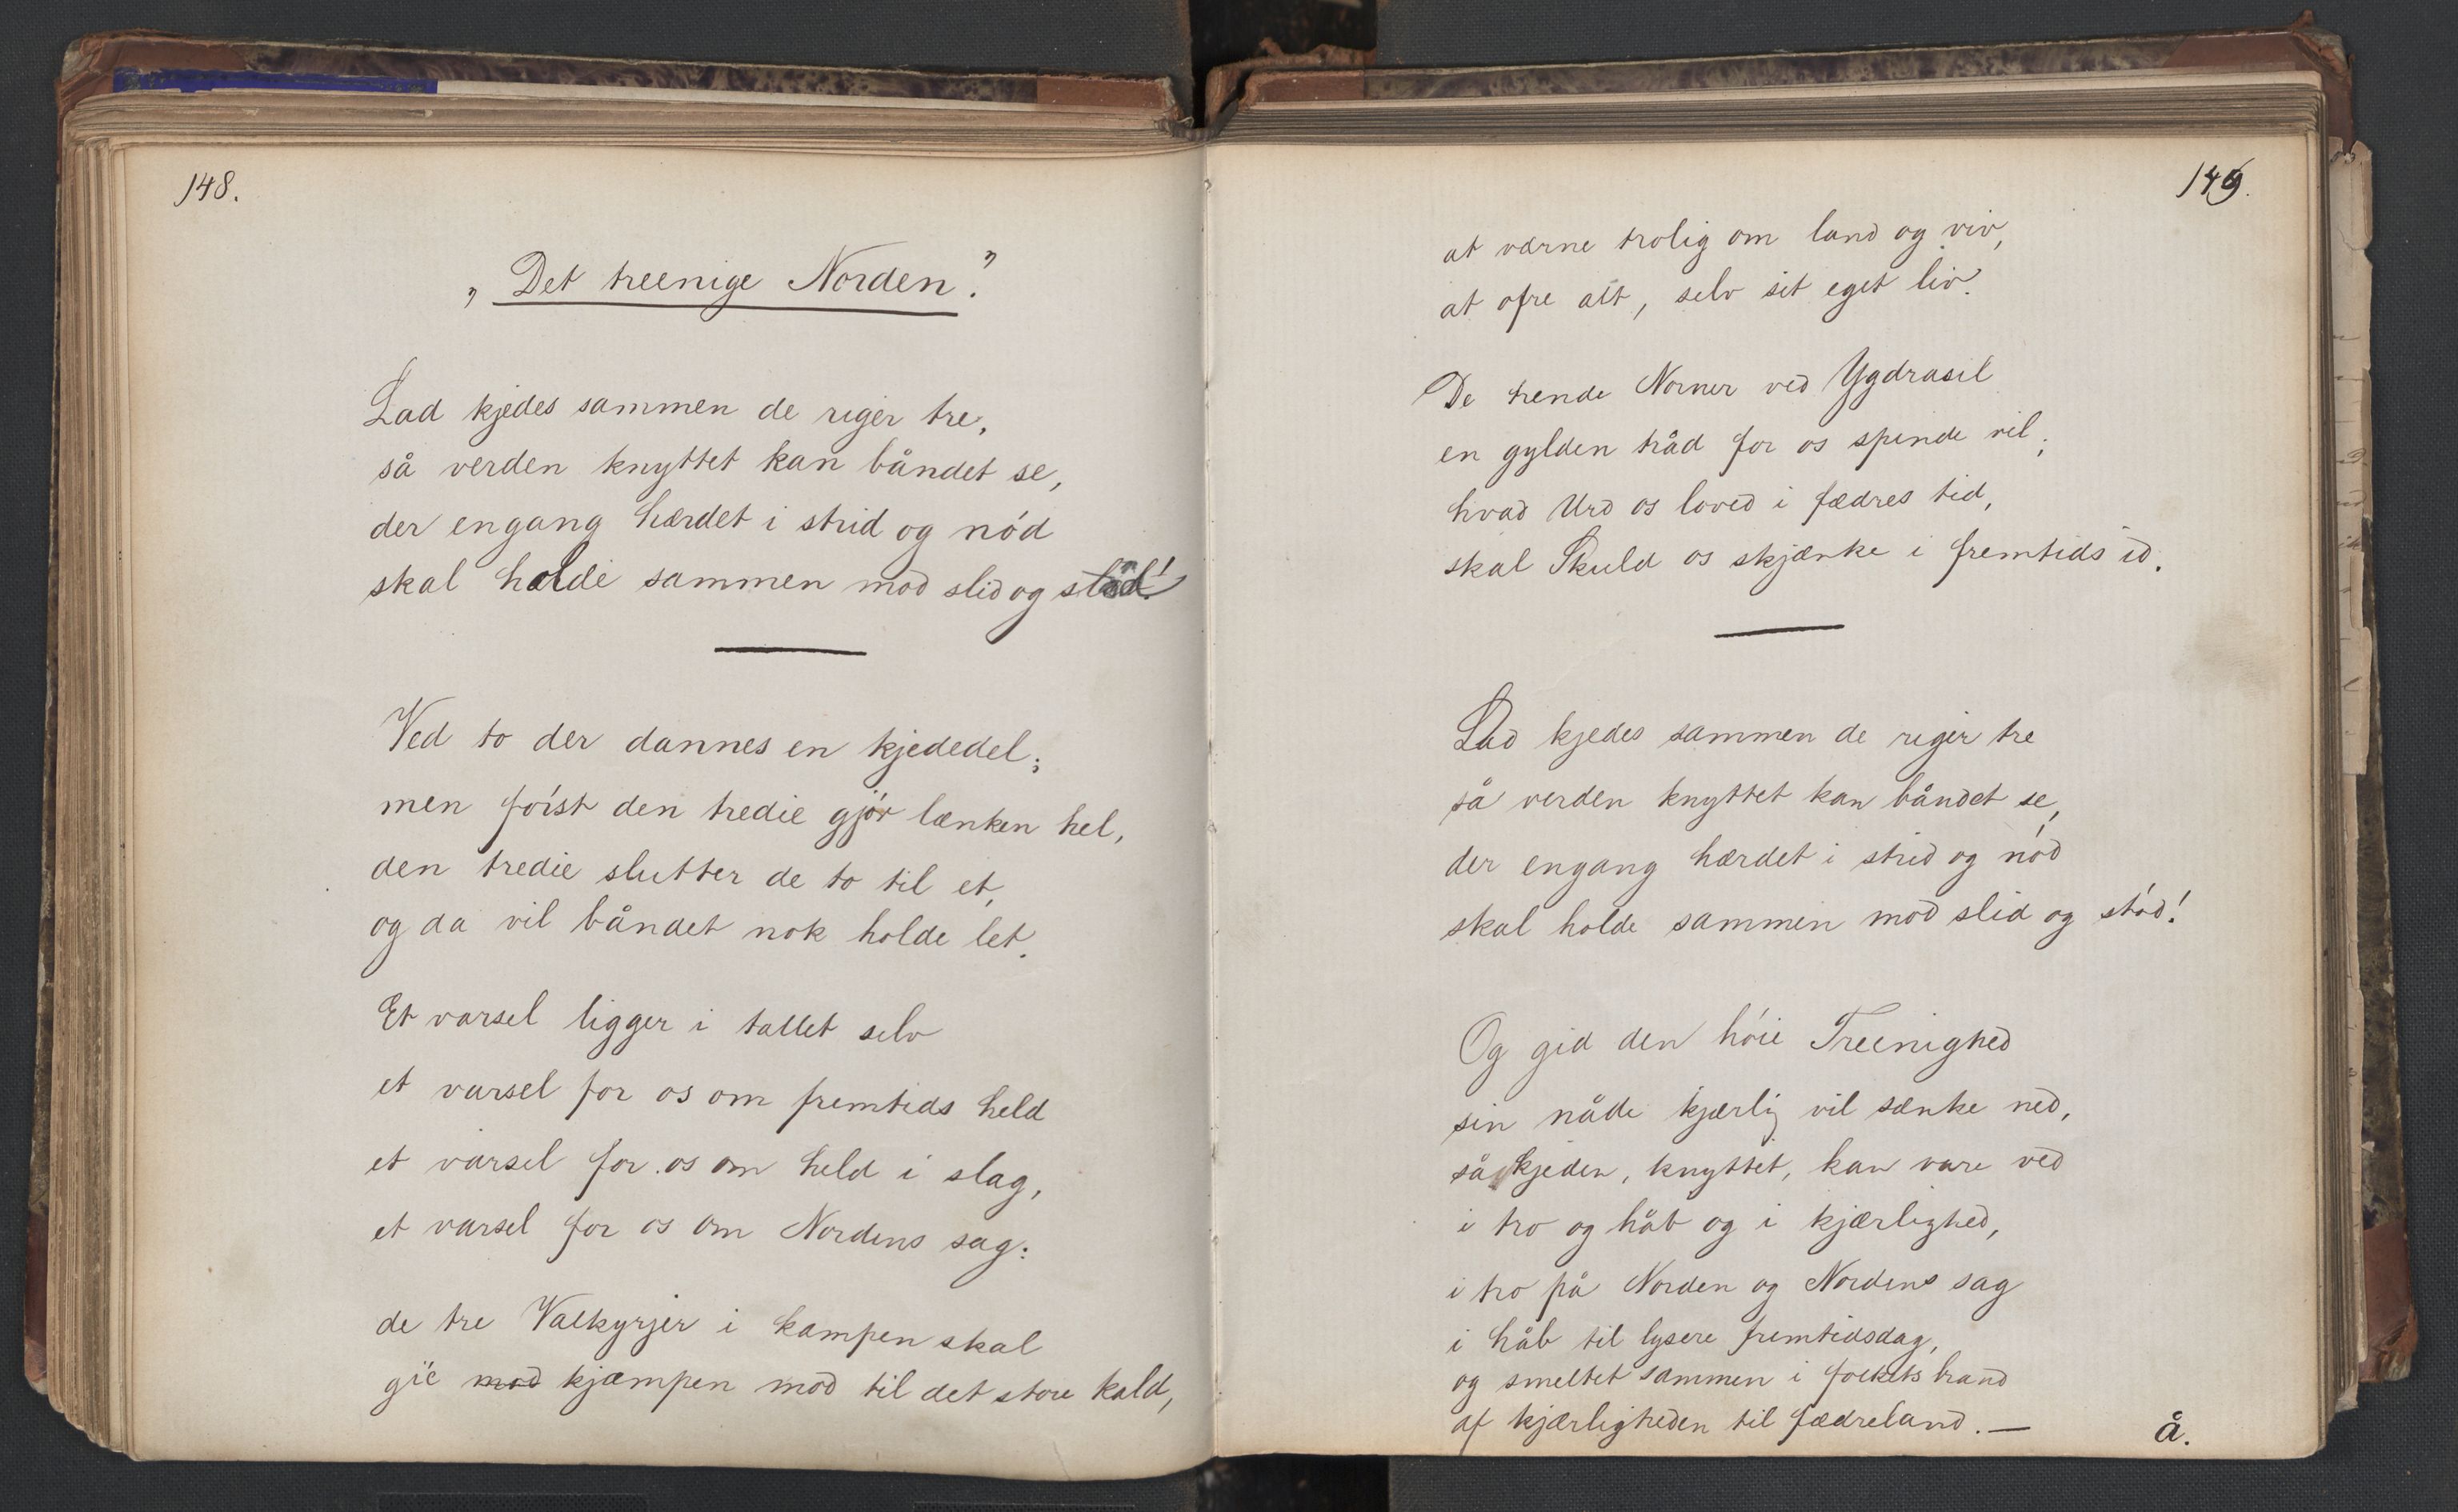 148.
„Det treenige Norden."
Lad kjedes sammen de riger tre,
så verden knyttet kan båndet se,
der engang hærdet i strid og nód
skal holde sammen mod slid og stód!
Ved to der dannes en kjededel;
men fórst den tredie gjór lænken hel,
den tredie slutter de to til et,
og da vil båndet nok holde let.
Et varsel ligger i tallet selv
et varsel for os om fremtids held
et varsel for os om held i slag,
et varsel for os om Nordens sag:
de tre Valkyrjer i kampen skal
gie mod kjæmpen mod til det store kald,
149.
at værne trolig om land og viv,
at ofre alt, selv sit eget liv.
De trende Norner ved Ygdrasil
en gylden tråd for os spinde vil;
hvad Urd os loved i fædres tid,
skal Skuld os skjænke i fremtids id.
Lad kjedes sammen de riger tre
så verden knyttet kan båndet se,
der engang hærdet i strid og nód
skal holde sammen mod slid og stód!
Og gid den hóie Treenighed
sin nåde kjærlig vil sænke ned,
så kjeden, knyttet, kan vare ved
i tro og håb og i kjærlighed,
i tro på Norden og Nordens sag
i håb til lysere fremtidsdag,
og smeltet sammen i folkets brand
af kjærligheden til fædreland. —
å.